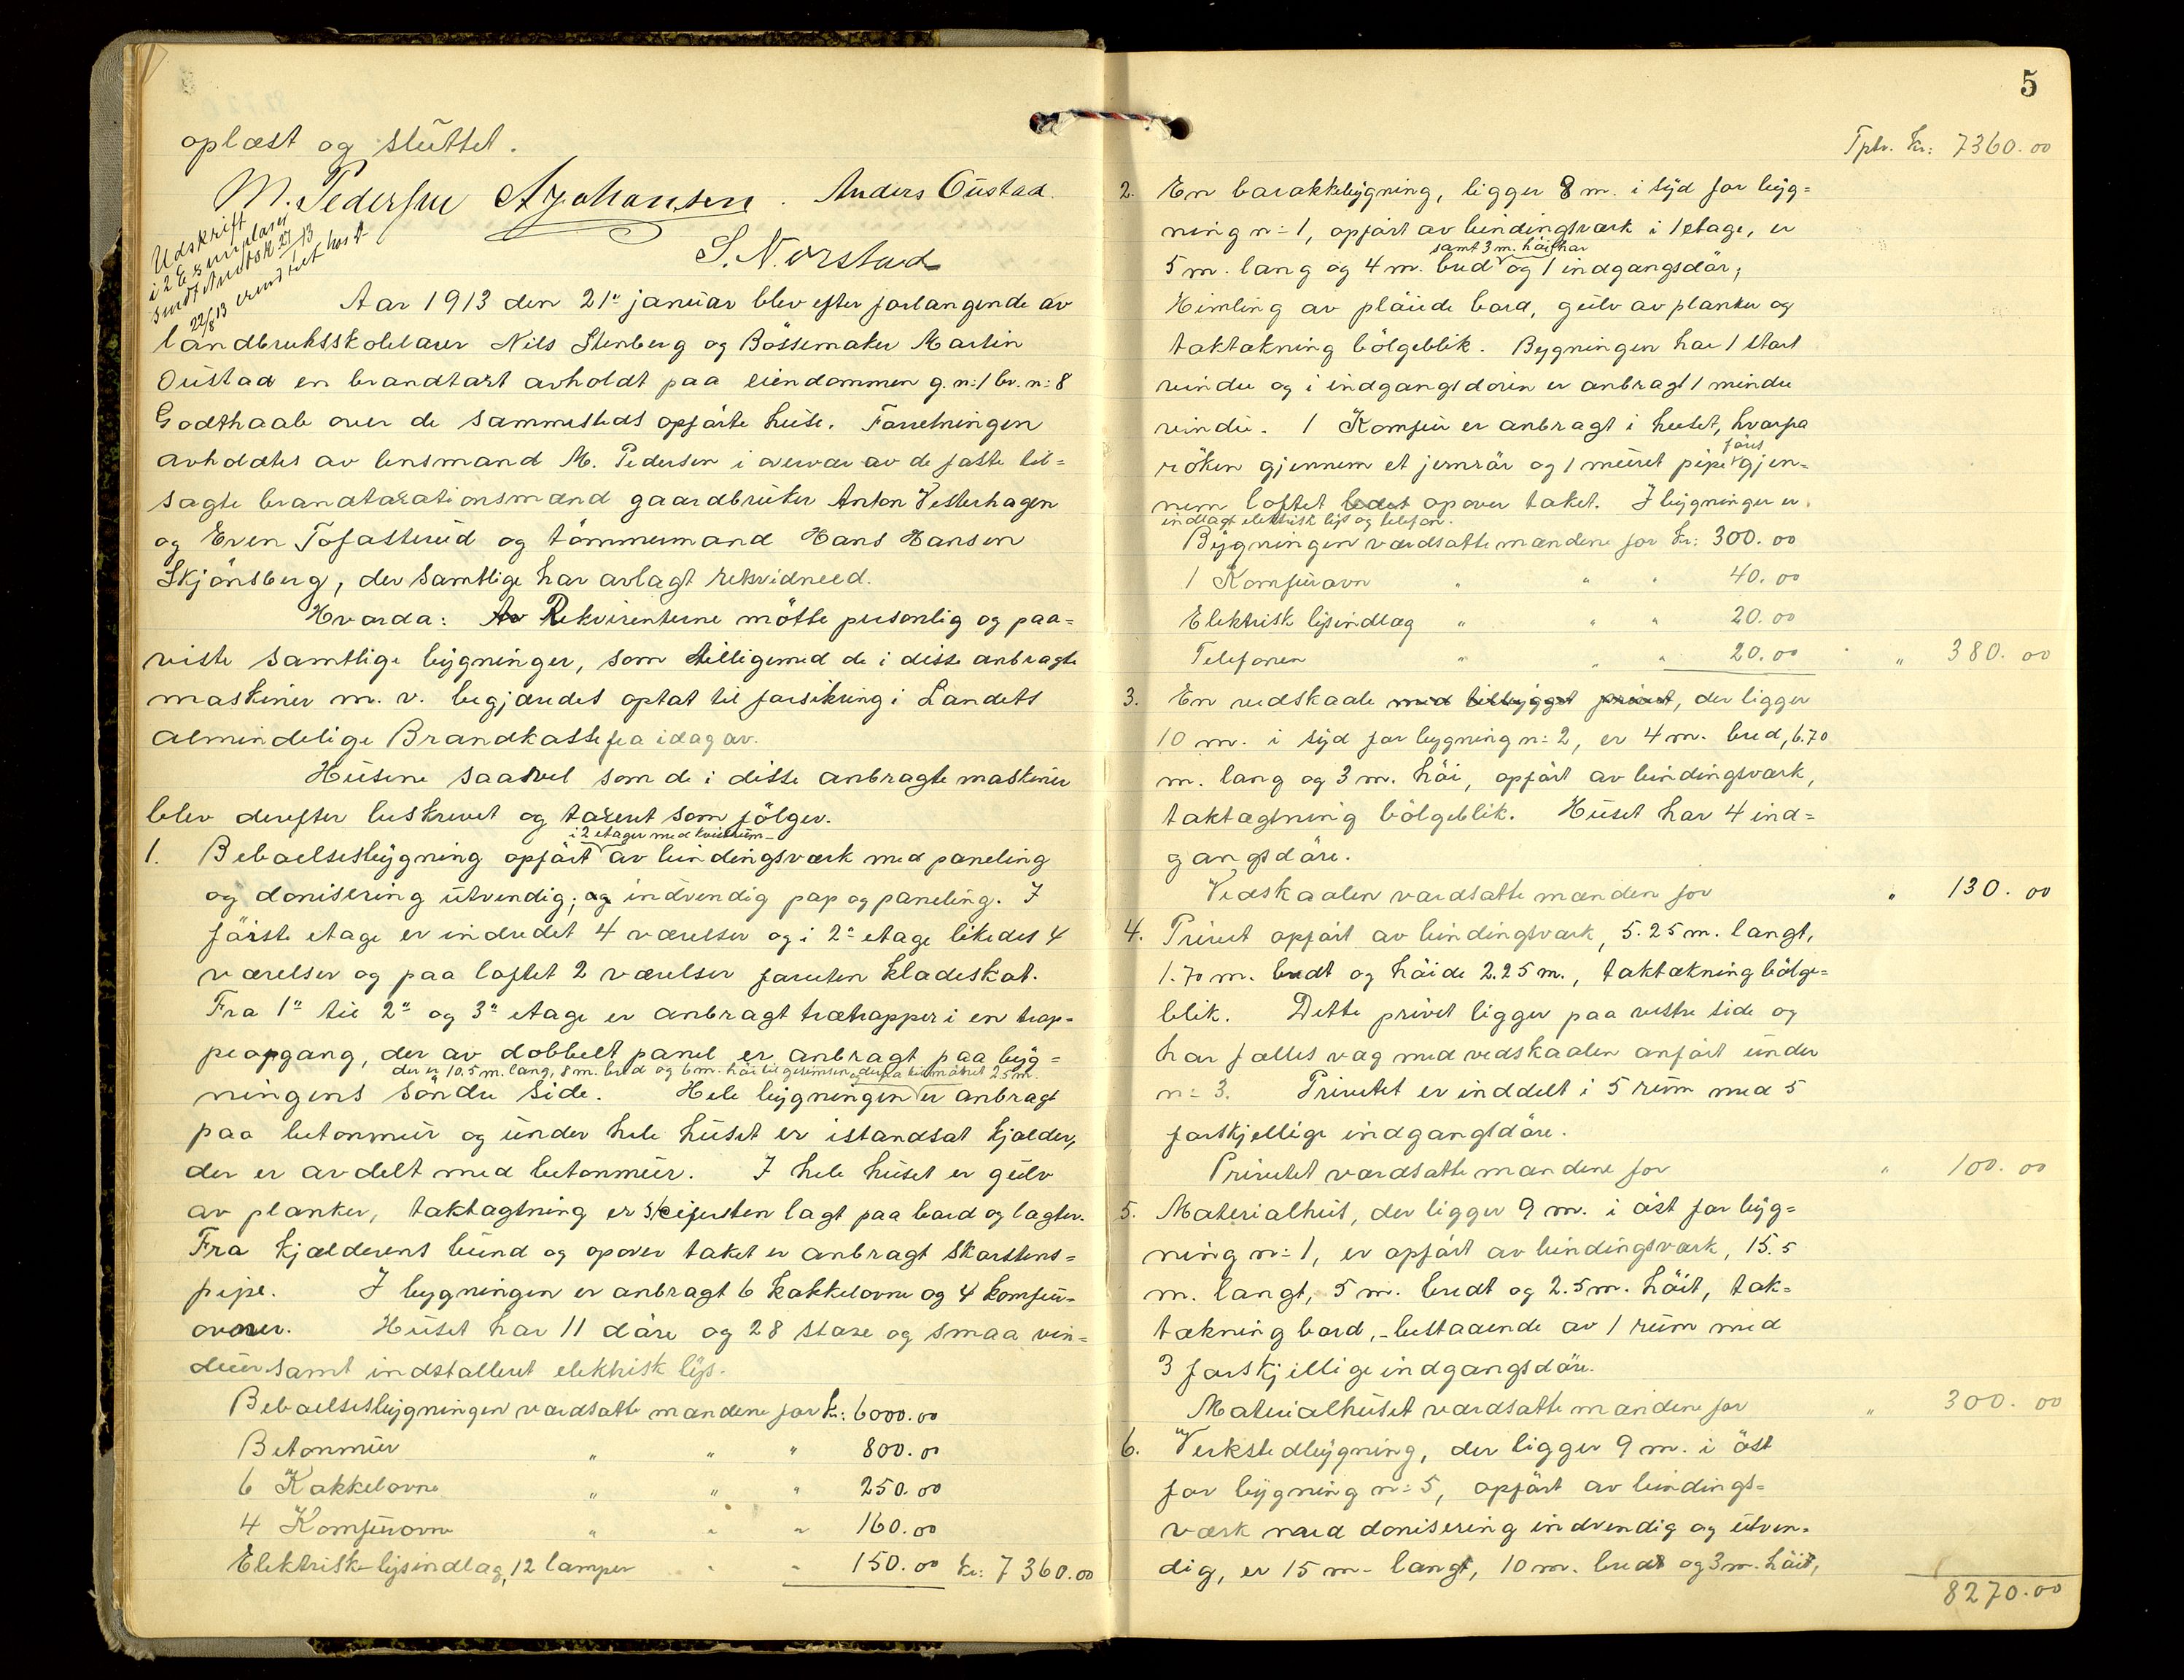 oplæst og sluttet.
M. Pedersen A Johansen. Anders Oustad.
S. N. Ørstad
Udskrift
i 2 Exemplarer
sendt 27/1 13
22/8 13
Aar 1913 den 21" januar blev efter forlangende av
landbruksskolelærer Nils Stenberg og Bössemaker Martin
Oustad en brandtaxt avholdt paa eiendommen g. n: 1 br. n: 8
Godthaab over de sammesteds opförte huse. Forretningen
avholdtes av lensmand M. Pedersen i overvær av de faste til=
sagte brandtaxationsmænd gaardbruker Anton Vesterhagen
og Even Tofasterud og tömmermand Hans Hansen
Skjönsberg, der samtlige har avlagt rekvidneed.
Hvorda: Rekvirenterne mötte personlig og paa=
viste samtlige bygninger, som tilligemed de i disse anbragte
maskiner m. v. begjæredes optat til forsikring i Landets
almindelige Brandkasse fra idag av.
Husene saavel som de i disse anbragte maskiner
blev derefter beskrevet og taxeret som fölger.
i 2 etager med kvistrum
1. Beboelsesbygning opfört av bindingsværk med paneling
og donisering utvendig; og indvendig pap og paneling. I
förste etage er indredet 4 værelser og i 2" etage likedes 4
værelser og paa loftet 2 værelser foruten klædeskot.
Fra 1" til 2" og 3" etage er anbragt trætrapper i en trap=
peopgang, der av dobbelt panel er anbragt paa byg=
der er 10.5 m. lang, 8 m. bred og 6 m. höi til gesimsen og derfra til mönet 2.5 m.
ningens söndre side. Hele bygningen er anbragt
paa betonmur og under hele huset er istandsat kjælder,
der er avdelt med betonmur. I hele huset er gulv
av planker, taktægtning er skifersten lagt paa bord og lægter.
Fra kjælderens bund og opover taket er anbragt skorstens=
pipe. I bygningen er anbragt 6 kakkelovne og 4 komfur=
ovner. Huset har 11 döre og 28 store og smaa vin=
duer samt indstalleret elektrisk lys.
Beboelsesbygningen værdsatte mændene for kr: 6000.00
Betonmur " " " 800.00
6 Kakkelovne " " " 250.00
4 Komfurovne " " " 160.00
Elektrisk-lysindlæg, 12 lamper " " 150.00 kr: 7360.00
5
Tptr. kr: 7360.00
2. En barakkebygning, ligger 8 m. i syd for byg=
ning n: 1, opfört av bindingsværk i 1 etage, er
samt 3 m. höi har
5 m. lang og 4 m. bred og 1 indgangsdör;
Himling av plöiede bord, gulv av planker og
taktækning bölgeblik. Bygningen har 1 stort
vindu og i indgangsdören er anbragt 1 mindre
vindu. 1 Komfur er anbragt i huset, hvorfra
föres
röken gjennem et jernrör og 1 muret pipe gjen=
nem loftet ledet opover taket. I bygninger er
indlagt elektrisk lys og telefon.
Bygningen værdsatte mændene for kr: 300.00
1 Komfurovn " " " 40.00
Elektrisk lysindlæg " " " 20.00
Telefonen " " " 20.00 " 380.00
3. En vedskaale med tilbygget privet, der ligger
10 m. i syd for bygning n: 2, er 4 m. bred, 6.70
m. lang og 3 m. höi, opfört av bindingsværk,
taktægtning bölgeblik. Huset har 4 ind=
gangsdöre.
Vedskaalen værdsatte mænden for " 130.00
4. Privet opfört av bindingsværk, 5.25 m. langt,
1.70 m. bredt og höide 2.25 m., taktækning bölge=
blik. Dette privet ligger paa vestre side og
har fælles væg med vedskaalen anfört under
n: 3. Privetet er inddelt i 5 rum med 5
forskjellige indgangsdöre.
Privetet værdsatte mændene for " 100.00
5. Materialhus, der ligger 9 m. i öst for byg=
ning n: 1, er opfört av bindingsværk, 15.5
m. langt, 5 m. bredt og 2.5 m. höit, tak=
tækning bord, - bestaaende av 1 rum med
3 forskjellige indgangsdöre.
Materialhuset værdsatte mændene for " 300.00
6. Verkstedbygning, der ligger 9 m. i öst
for bygning n: 5, opfört av bindings=
værk med donisering indvendig og utven=
dig, er 15 m. langt, 10 m. bredt og 3 m. höit,
8270.00